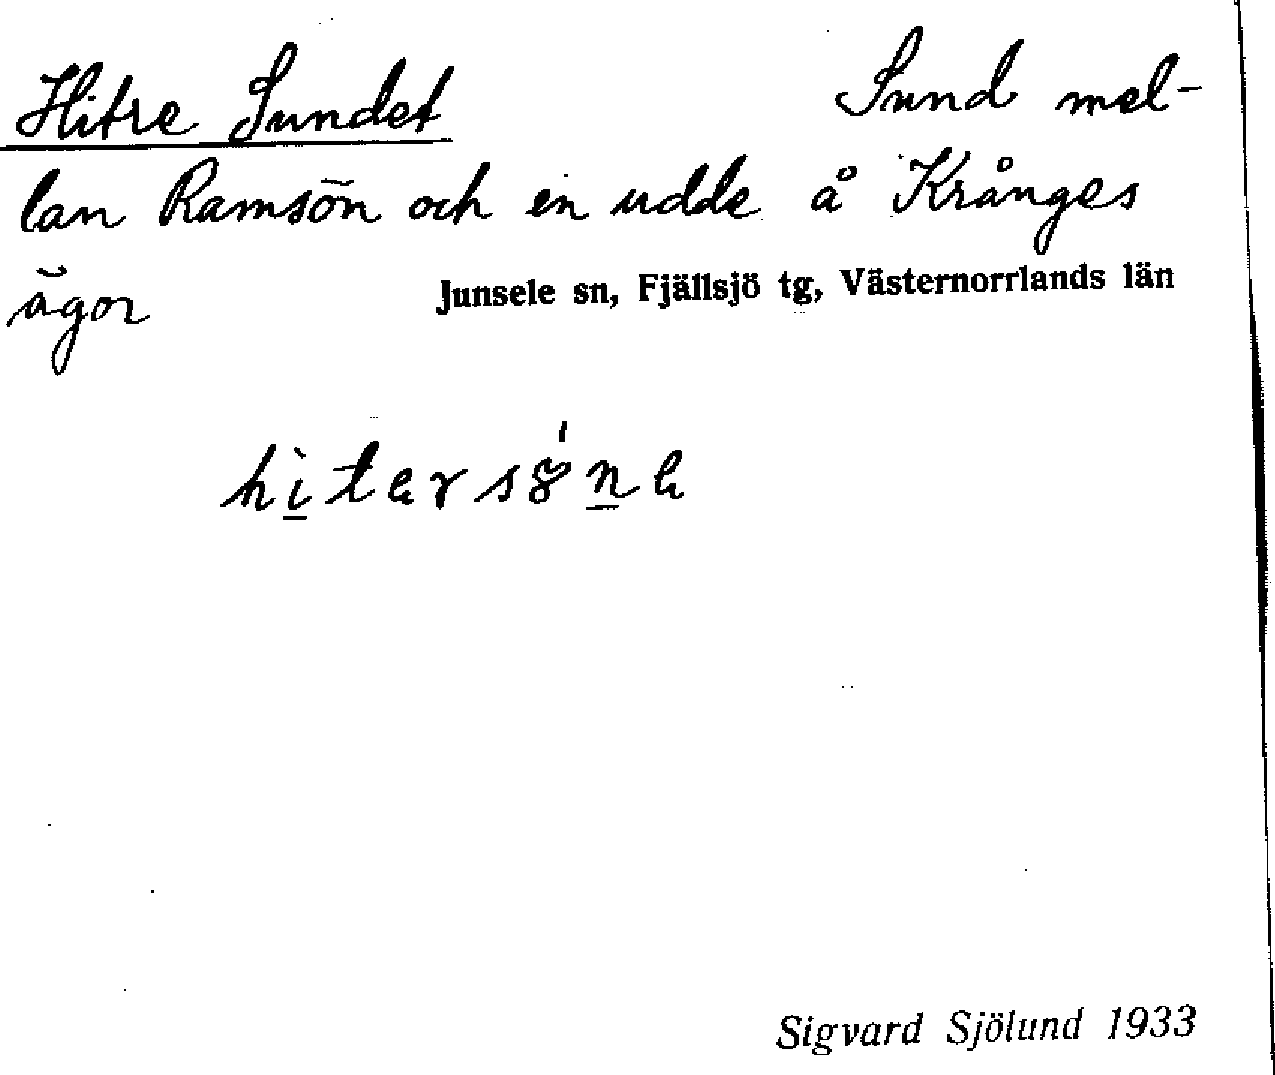 Hitre Sundet Sund mel-
lan Ramsön och en udde å Krånges
ägor Junsele sn, Fjällsjö tg, Västernorrlands län
Sigvard Sjölund 1933